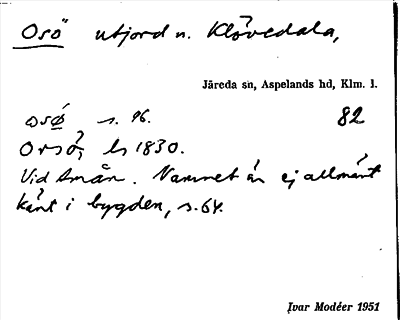 Osö utjord n. Klövedala,
Järeda sn, Aspelands hd, Klm. l.
osö s. 96. 82
Orsö, ls 1830.
Vid Amån. Namnet är ej allmänt
känt i bygden, s. 64.
Ivar Modéer 1951